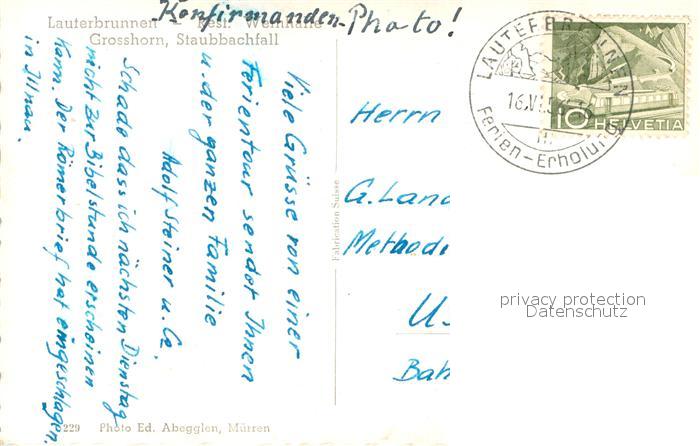 Konfirmanden-Photo!
Lauterbrunnen
Grosshorn, Staubbachfall
Viele Grüsse von einer
Ferientour sendet Ihnen
u. der ganzen Familie
Adolf Steiner u. Co.
Schade dass ich nächsten Dienstag
nicht zur Bibelstunde erscheinen
kann. Der Römerbrief hat eingeschlagen
in Illnau.
229 Photo Ed. Abegglen, Mürren
Fabrication Suisse
Herrn
G. Land
Methodi
U.
Bah
LAUTERBRUNNEN
16.VI.
Ferien-Erholung
10 HELVETIA
privacy protection
Datenschutz